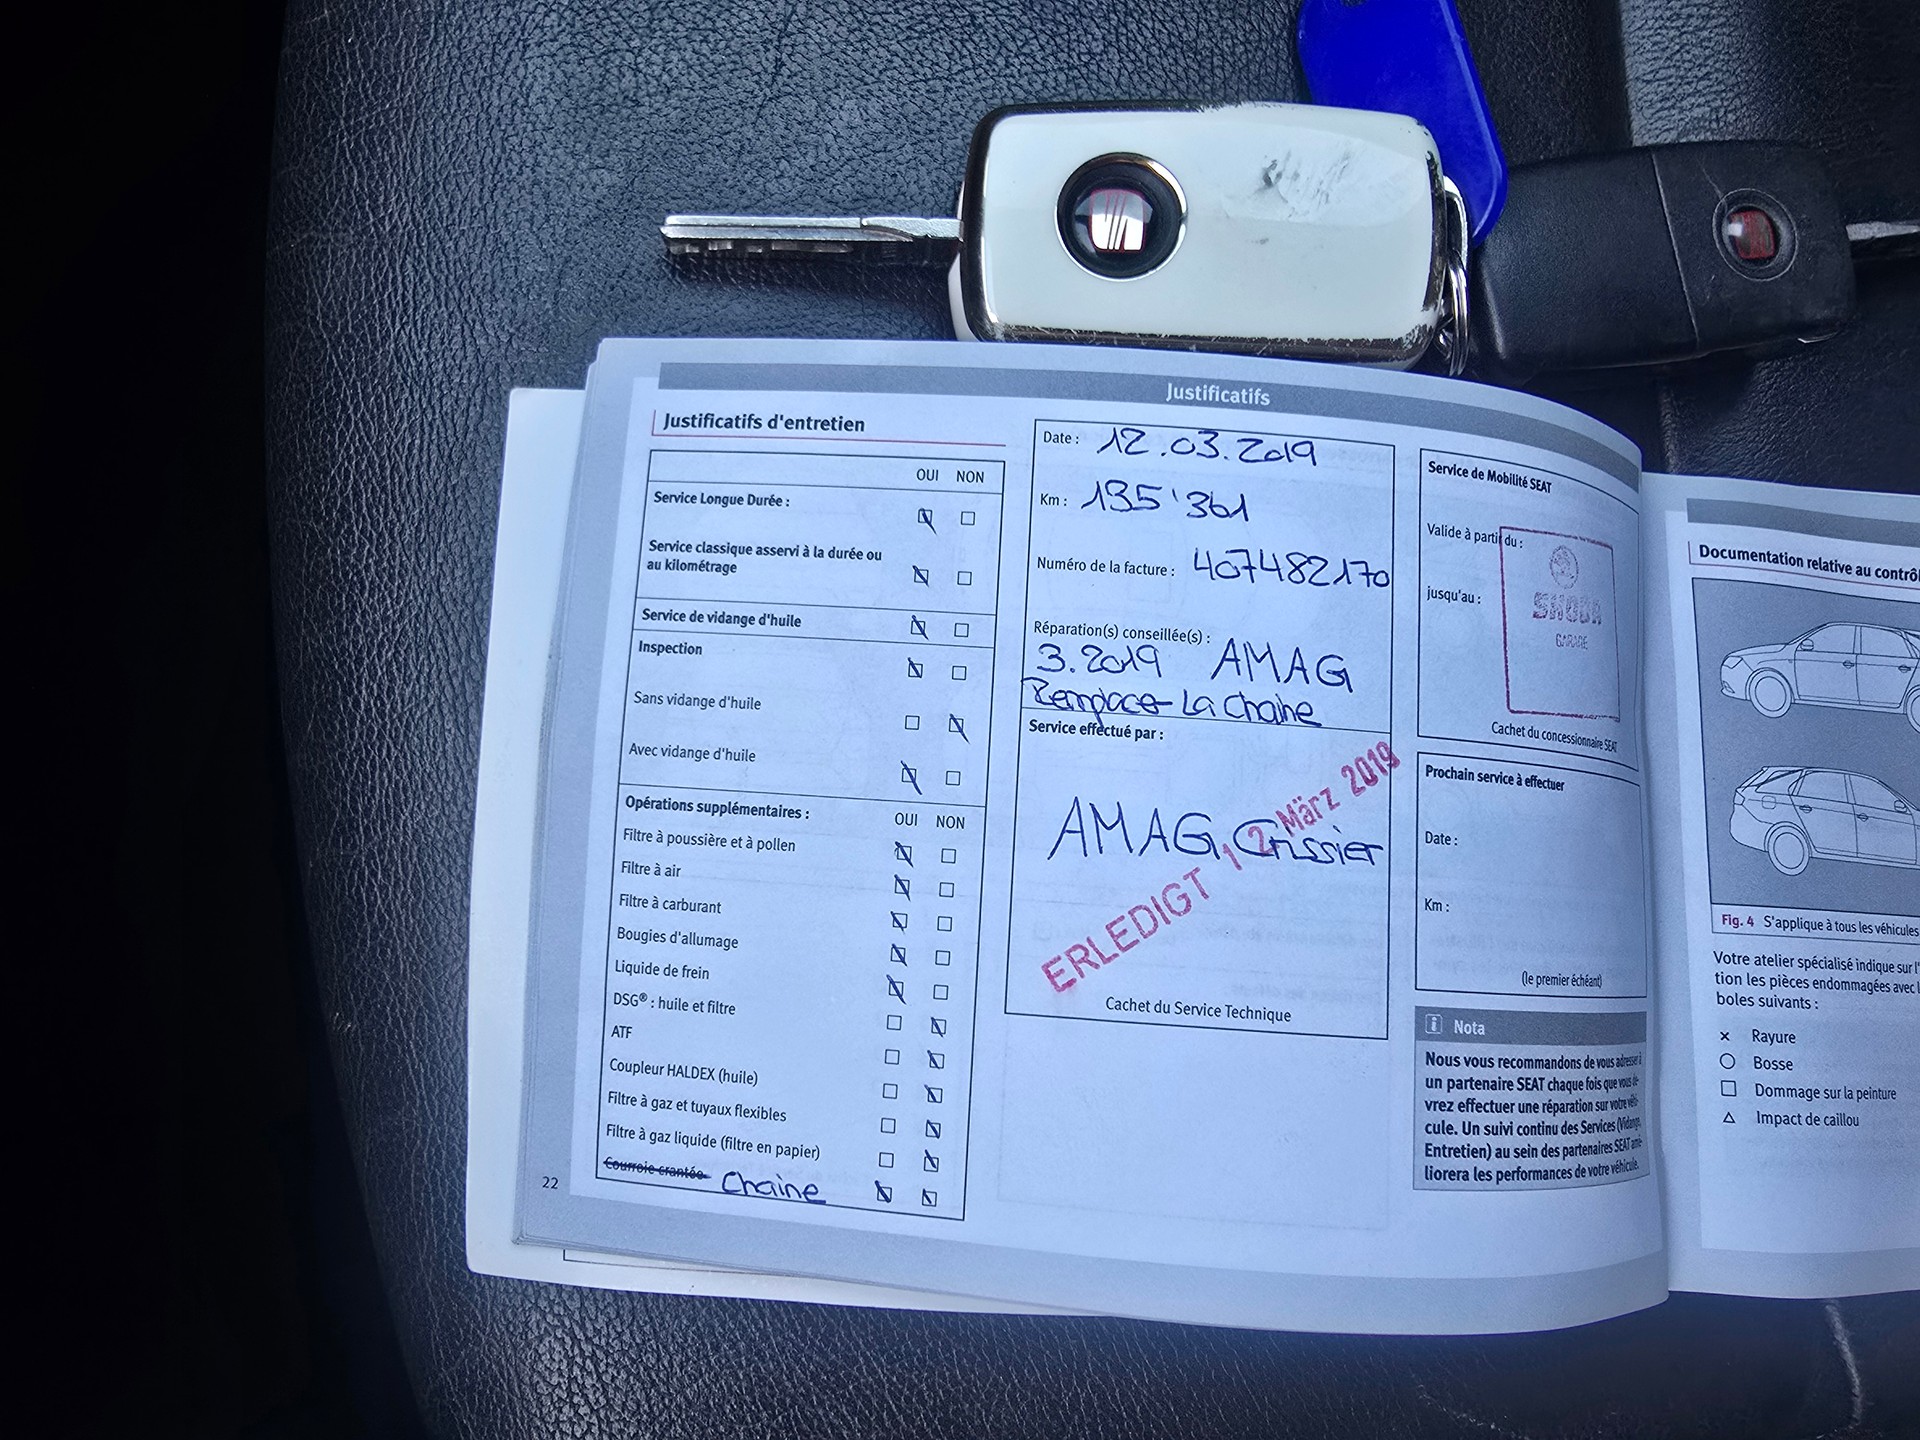 Justificatifs
Justificatifs d'entretien
OUI NON
Service Longue Durée :
Service classique asservi à la durée ou
au kilométrage
Service de vidange d'huile
Inspection
Sans vidange d'huile
Avec vidange d'huile
Opérations supplémentaires :
OUI NON
Filtre à poussière et à pollen
Filtre à air
Filtre à carburant
Bougies d'allumage
Liquide de frein
DSG® : huile et filtre
ATF
Coupleur HALDEX (huile)
Filtre à gaz et tuyaux flexibles
Filtre à gaz liquide (filtre en papier)
Courroie crantée Chaine
22
Date : 12.03.2019
Km : 135'361
Numéro de la facture : 407482170
Réparation(s) conseillée(s) :
3.2019 AMAG
Remplacer La Chaine
Service effectué par :
AMAG, Crissier
ERLEDIGT 12. März 2019
Cachet du Service Technique
Service de Mobilité SEAT
Valide à partir du :
jusqu'au :
SKODA
GARAGE
Cachet du concessionnaire SEAT
Prochain service à effectuer
Date :
Km :
(le premier échéant)
Nota
Nous vous recommandons de vous adresser à
un partenaire SEAT chaque fois que vous de-
vrez effectuer une réparation sur votre véhi-
cule. Un suivi continu des Services (Vidange,
Entretien) au sein des partenaires SEAT amé-
liorera les performances de votre véhicule.
Documentation relative au contrôl
Fig. 4 S'applique à tous les véhicules
Votre atelier spécialisé indique sur l'
tion les pièces endommagées avec l
boles suivants :
× Rayure
○ Bosse
□ Dommage sur la peinture
△ Impact de caillou